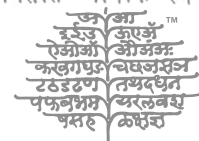 अ आ ™
इ ई उ ऊ ए ॲ
ऐ ओ औ ऑ अं अः
क ख ग घ ङ च छ ज झ ञ
ट ठ ड ढ ण त थ द ध न
प फ ब भ म य र ल व श
ष स ह ळ क्ष ज्ञ